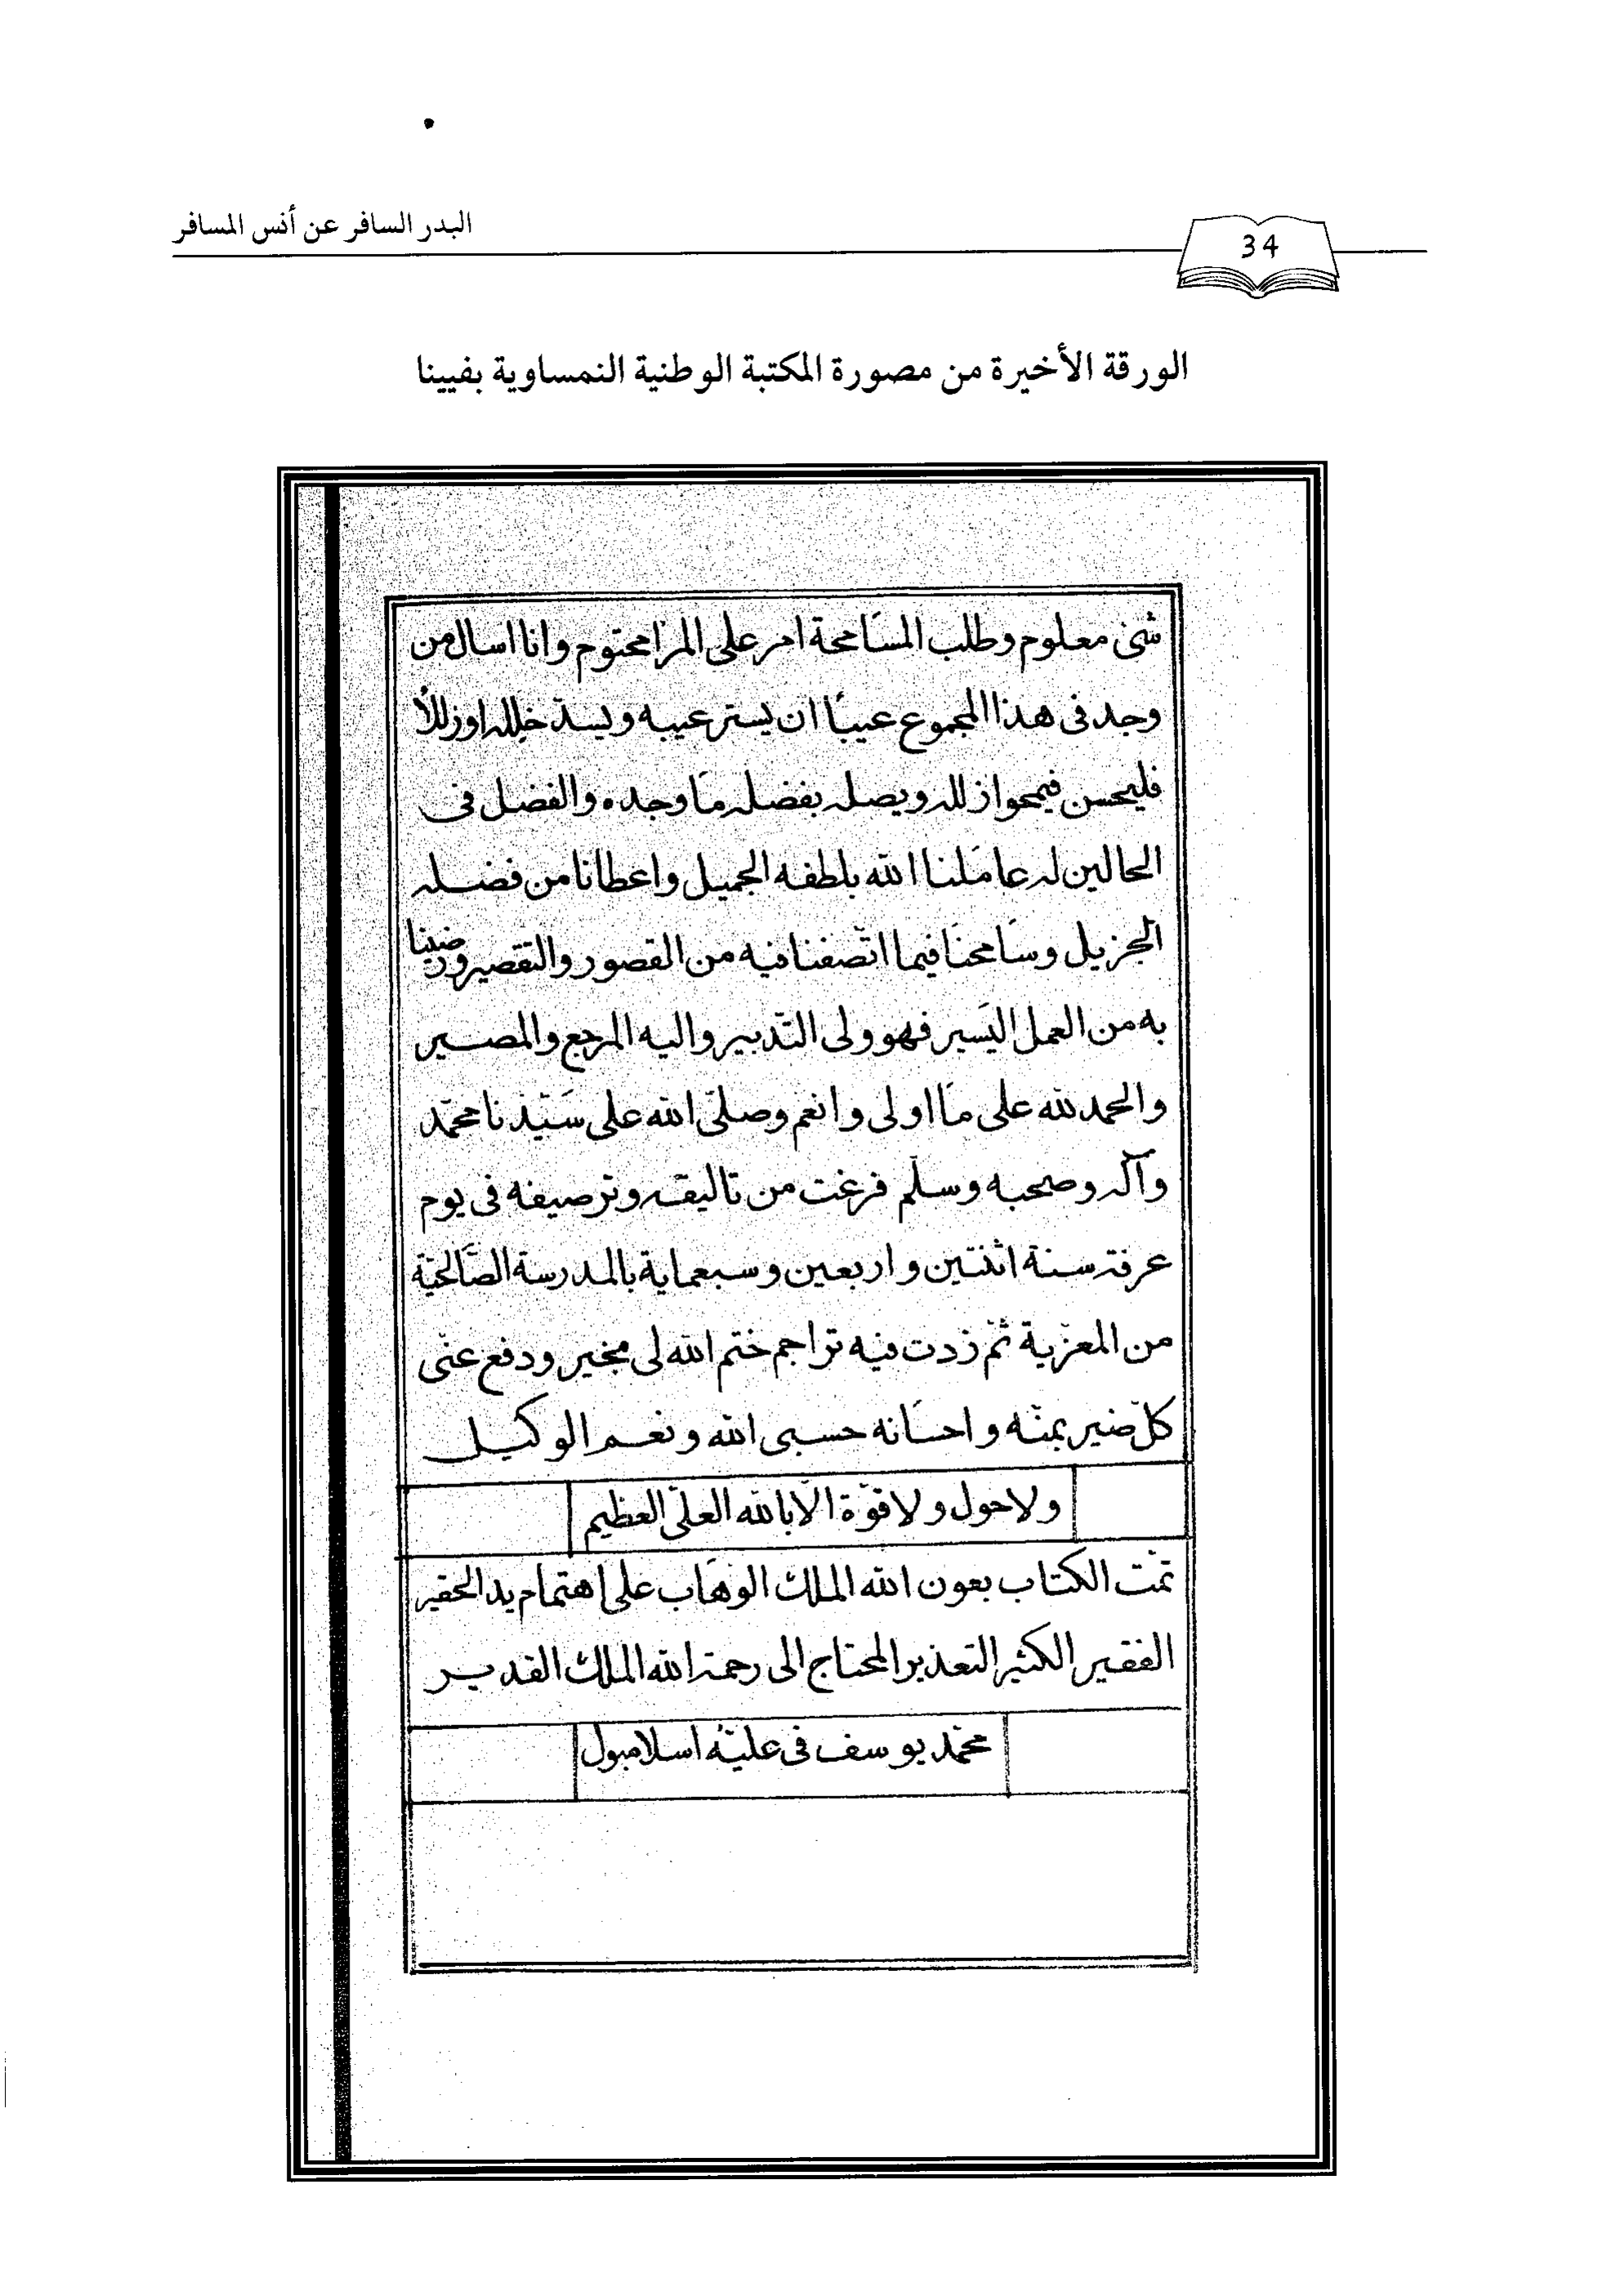 البدر السافر عن أنس المسافر
34
الورقة الأخيرة من مصورة المكتبة الوطنية النمساوية بفيينا
شئ معلوم وطلب المسَامحة امر على المرا محتوم وانا اسال من
وجد فى هذا المجموع عيبًا ان يستر عيبه ويسدّ خلله او زللاً
فليحسن فيمحوا زلله ويصله بفضله مَا وجده والفضل فى
الحالين له عامَلنا الله بلطفه الجميل واعطانا من فضله
الجزيل وسَامحنَا فيما اتّصفنا فيه من القصور والتقصير ورضينا
به من العمل اليَسير فهو ولى التّدبير واليه المرجع والمصير
والحمد لله على مَا اولى وانعم وصلىّ الله على سَيّدنا محمّد
وآله وصحبه وسلّم فرغت من تاليفه وترصيفه فى يوم
عرفة سنة اثنتين واربعين وسبعماية بالمدرسة الصّالحيّة
من المعزّية ثمّ زدت فيه تراجم ختم الله لى بخير ودفع عنّى
كلّ ضير بمنّه واحسَانه حسبى الله ونعم الوكيل
ولا حول ولا قوّة الّا بالله العلىّ العظيم
تمّت الكتاب بعون الله الملك الوهّاب على اهتمام يد الحقير
الفقير الكثير التعذير المحتاج الى رحمة الله الملك القدير
محمّد يوسف فى عليّه اسلامبول